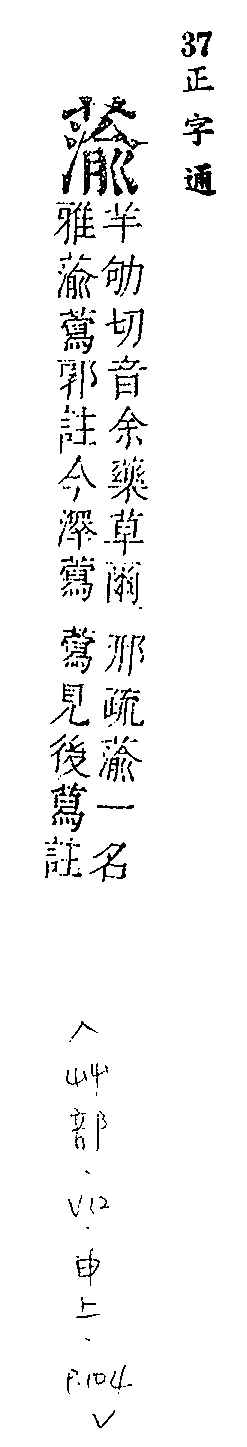 37正字通
蕍
羊劬切音余藥草爾
雅蕍蕮郭註今澤蕮
邢疏蕍一名
蕮見後蕮註
〈艸部·V12·申上·P.104〉